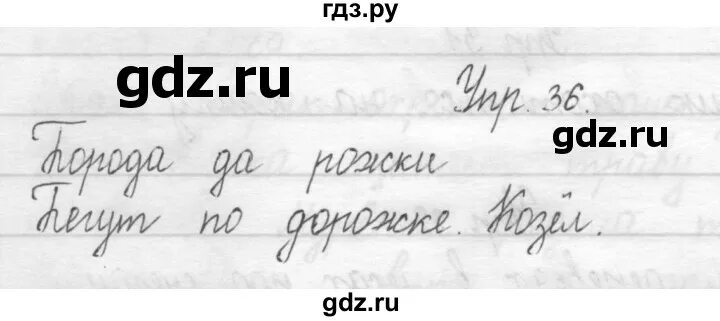 гдз.ру
gdz.ru
Упр. 36.
gdz.ru
Борода да рожки
Бегут по дорожке. Козёл.
gdz.ru